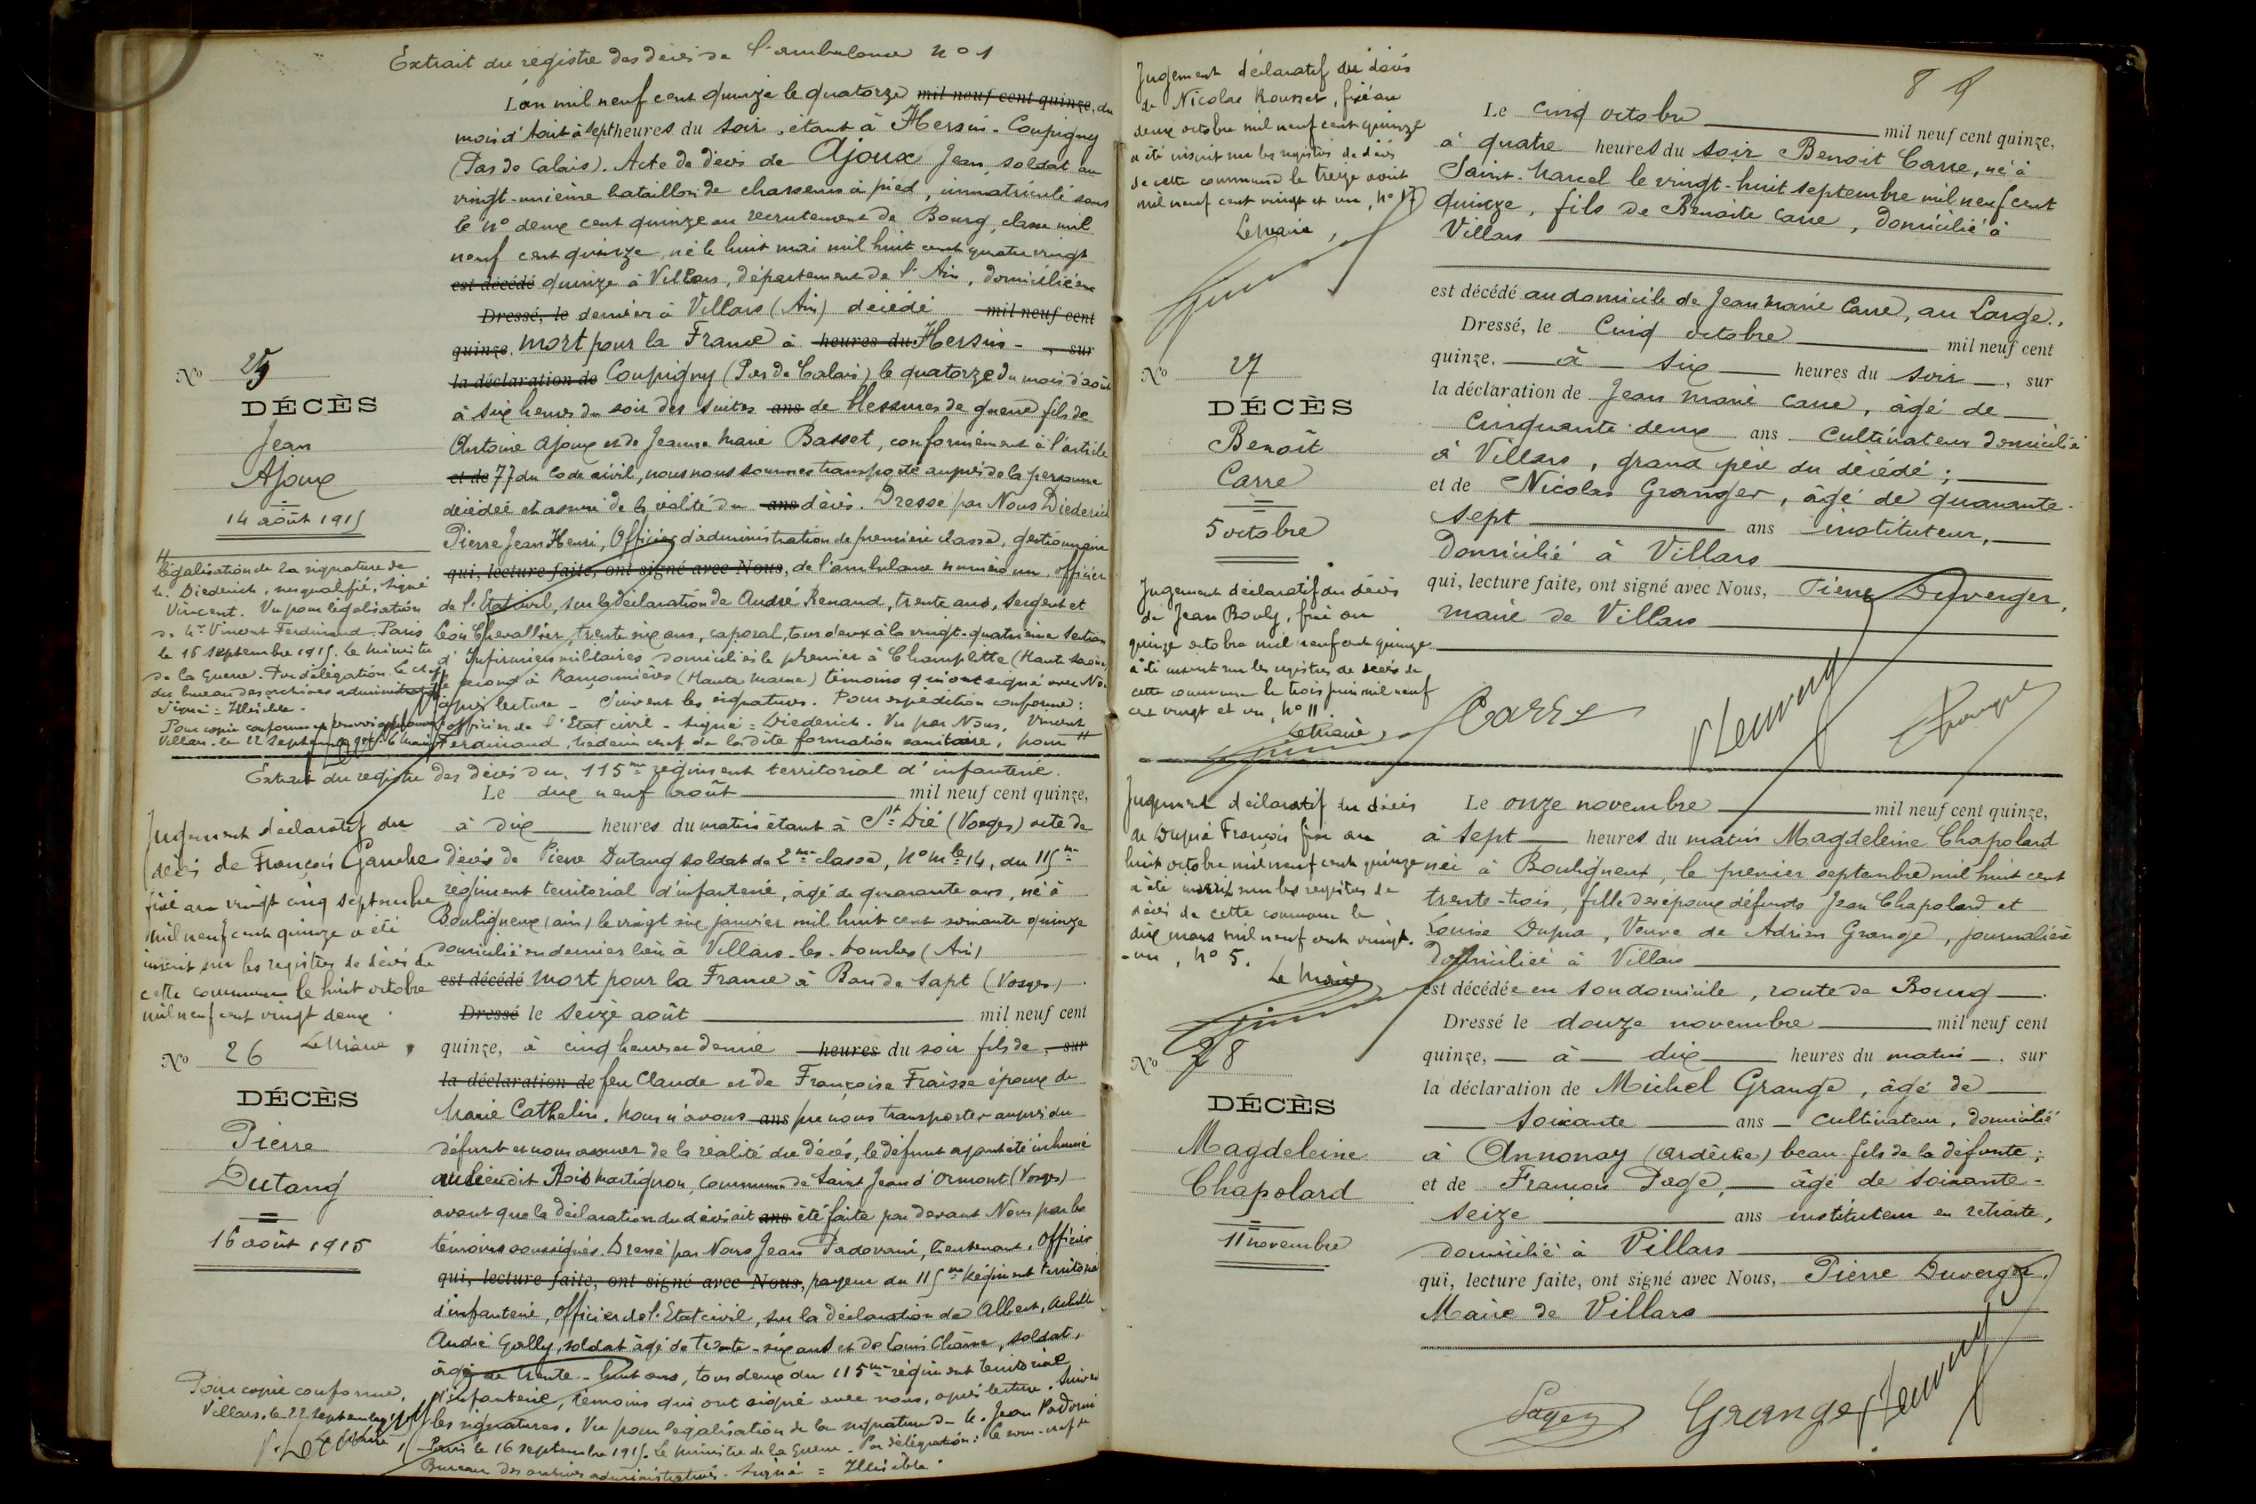 Extrait du registre des décès de l'ambulance n° 1
L'an mil neuf cent quinze le quatorze mil neuf cent quinze, du
mois d'Août à sept heures du soir, étant à Hersin-Coupigny
(Pas de Calais). Acte de décès de Ajoux Jean, soldat au
vingt-unième bataillon de chasseurs à pied, immatriculé sous
le n° deux cent quinze au recrutement de Bourg, classe mil
neuf cent quinze, né le huit mai mil huit cent quatre vingt
est décédé quinze à Villars, département de l'Ain, domicilié en
Dressé, le dernier à Villars (Ain) décédé mil neuf cent
quinze. mort pour la France à heures du Hersin- , sur
la déclaration de Coupigny (Pas de Calais) le quatorze du mois d'août
à six heures du soir des suites ans de blessures de guerre fils de
Antoine Ajoux et de Jeanne Marie Basset, conformément à l'article
et de 77 du Code civil, nous nous sommes transporté auprès de la personne
décédée et assuré de la réalité du ans décès. Dressé par Nous Diederich
Pierre Jean Henri, Officier d'administration de première classe, gestionnaire
qui, lecture faite, ont signé avec Nous, de l'ambulance numéro un, officier
de l'Etat civil, sur la déclaration de André Renaud, trente ans, sergent et
Léon Chevallier, trente six ans, caporal, tous deux à la vingt-quatrième section
d'Infirmiers militaires domiciliés le premier à Champlitte (Haute Saône)
le second à (Haute Marne) témoins qui ont signé avec Nous
après lecture - Suivent les signatures. Pour expédition conforme:
l'officier de l'Etat civil - signé: Diederich. Vu par Nous, Vincent
Ferdinand, médecin chef de la dite formation sanitaire, pour #
N° 25
DÉCÈS
Jean
Ajoux
14 août 1915
# légalisation de la signature de
M. Diederich, susqualifié. Signé
Vincent. Vu pour légalisation
de Mr Vincent Ferdinand. Paris
le 16 septembre 1915. Le Ministre
de la Guerre. Par délégation. Le chef
du bureau des archives administratives
Signé = Illisible.
Pour copie conforme
Villars, le 22 Septembre
Extrait du registre des décès du 115me régiment territorial d'infanterie.
Le dix neuf août mil neuf cent quinze,
à dix heures du matin étant à St Dié (Vosges) acte de
décès de Pierre Dutang soldat de 2me classe, N° Mle 14, du 115me
régiment territorial d'infanterie, âgé de quarante ans, né à
Bouligneux (Ain) le vingt six janvier mil huit cent soixante quinze
domicilié en dernier lieu à Villars-les-Dombes (Ain)
est décédé mort pour la France à Ban de Sapt (Vosges)
Dressé le seize août mil neuf cent
quinze, à cinq heures et demie heures du soir fils de , sur
la déclaration de feu Claude et de Françoise Fraisse époux de
Marie Cathelin. Nous n'avons ans pu nous transporter auprès du
défunt et nous assurer de la réalité du décès, le défunt ayant été inhumé
au lieu dit Bois Martignon, commune de Saint Jean d'Ormont (Vosges)
avant que la déclaration du décès ait ans été faite par devant Nous par les
témoins soussignés. Dressé par Nous Jean Padovani, lieutenant, Officier
qui, lecture faite, ont signé avec Nous, payeur du 115me Régiment territorial
d'infanterie, Officier de l'Etat civil, sur la déclaration de Albert, Achille
André Golly, soldat âgé de trente-six ans et de Louis Charme, soldat,
âgé de trente-huit ans, tous deux du 115me régiment territorial
d'infanterie, témoins qui ont signé avec nous, après lecture. Suivent
les signatures. Vu pour légalisation de la signature de M. Jean Padovani
Paris le 16 septembre 1915. Le Ministre de la Guerre - Par délégation: le sous-chef du
Bureau des archives administratives. Signé = Illisible.
Jugement déclaratif du
décès de François Ganche
fixé au vingt cinq septembre
mil neuf cent quinze a été
inscrit sur les registres de décès de
cette commune le huit octobre
mil neuf cent vingt deux.
Le Maire,
N° 26
DÉCÈS
Pierre
Dutang
16 août 1915
Pour copie conforme,
Villars, le 22 Septembre 1915
Le Maire,
Jugement déclaratif du décès
de Nicolas Rousset, fixé au
deux octobre mil neuf cent quinze
a été inscrit sur les registres de décès
de cette commune le treize août
mil neuf cent vingt et un, N° 17
Le Maire,
N° 27
DÉCÈS
Benoît
Carre
5 octobre
Jugement déclaratif du décès
de Jean Bouly, fixé au
quinze octobre mil neuf cent quinze
a été inscrit sur les registres de décès de
cette commune le trois juin mil neuf
cent vingt et un, N° 11.
Le Maire,
8 9
Le cinq octobre mil neuf cent quinze,
à quatre heures du soir Benoit Carre, né à
Saint-Marcel le vingt-huit septembre mil neuf cent
quinze, fils de Benoite Carre, domicilié à
Villars
est décédé au domicile de Jean Marie Carre, au Large.
Dressé, le cinq octobre mil neuf cent
quinze. à six heures du soir, sur
la déclaration de Jean Marie Carre, âgé de
cinquante-deux ans cultivateur domicilié
à Villars, grand père du décédé;
et de Nicolas Granger, âgé de quarante-
sept ans instituteur,
domicilié à Villars
qui, lecture faite, ont signé avec Nous, Pierre Duverger,
maire de Villars
Carre
Jugement déclaratif du décès
de Dupré François fixé au
huit octobre mil neuf cent quinze
a été inscrit sur les registres de
décès de cette commune le
dix mars mil neuf cent vingt-
-un, N° 5.
Le Maire,
N° 28
DÉCÈS
Magdeleine
Chapolard
11 novembre
Le onze novembre mil neuf cent quinze,
à sept heures du matin Magdeleine Chapolard
née à Bouligneux, le premier septembre mil huit cent
trente-trois, fille des époux défunts Jean Chapolard et
Louise Dupra, Veuve de Adrien Grange, journalière
domiciliée à Villars
est décédée en son domicile, route de Bourg.
Dressé le douze novembre mil neuf cent
quinze, à dix heures du matin, sur
la déclaration de Michel Grange, âgé de
soixante ans cultivateur, domicilié
à Annonay (Ardèche) beau-fils de la défunte;
et de François Page, âgé de soixante-
seize ans instituteur en retraite,
domicilié à Villars
qui, lecture faite, ont signé avec Nous, Pierre Duverger,
Maire de Villars
Grange